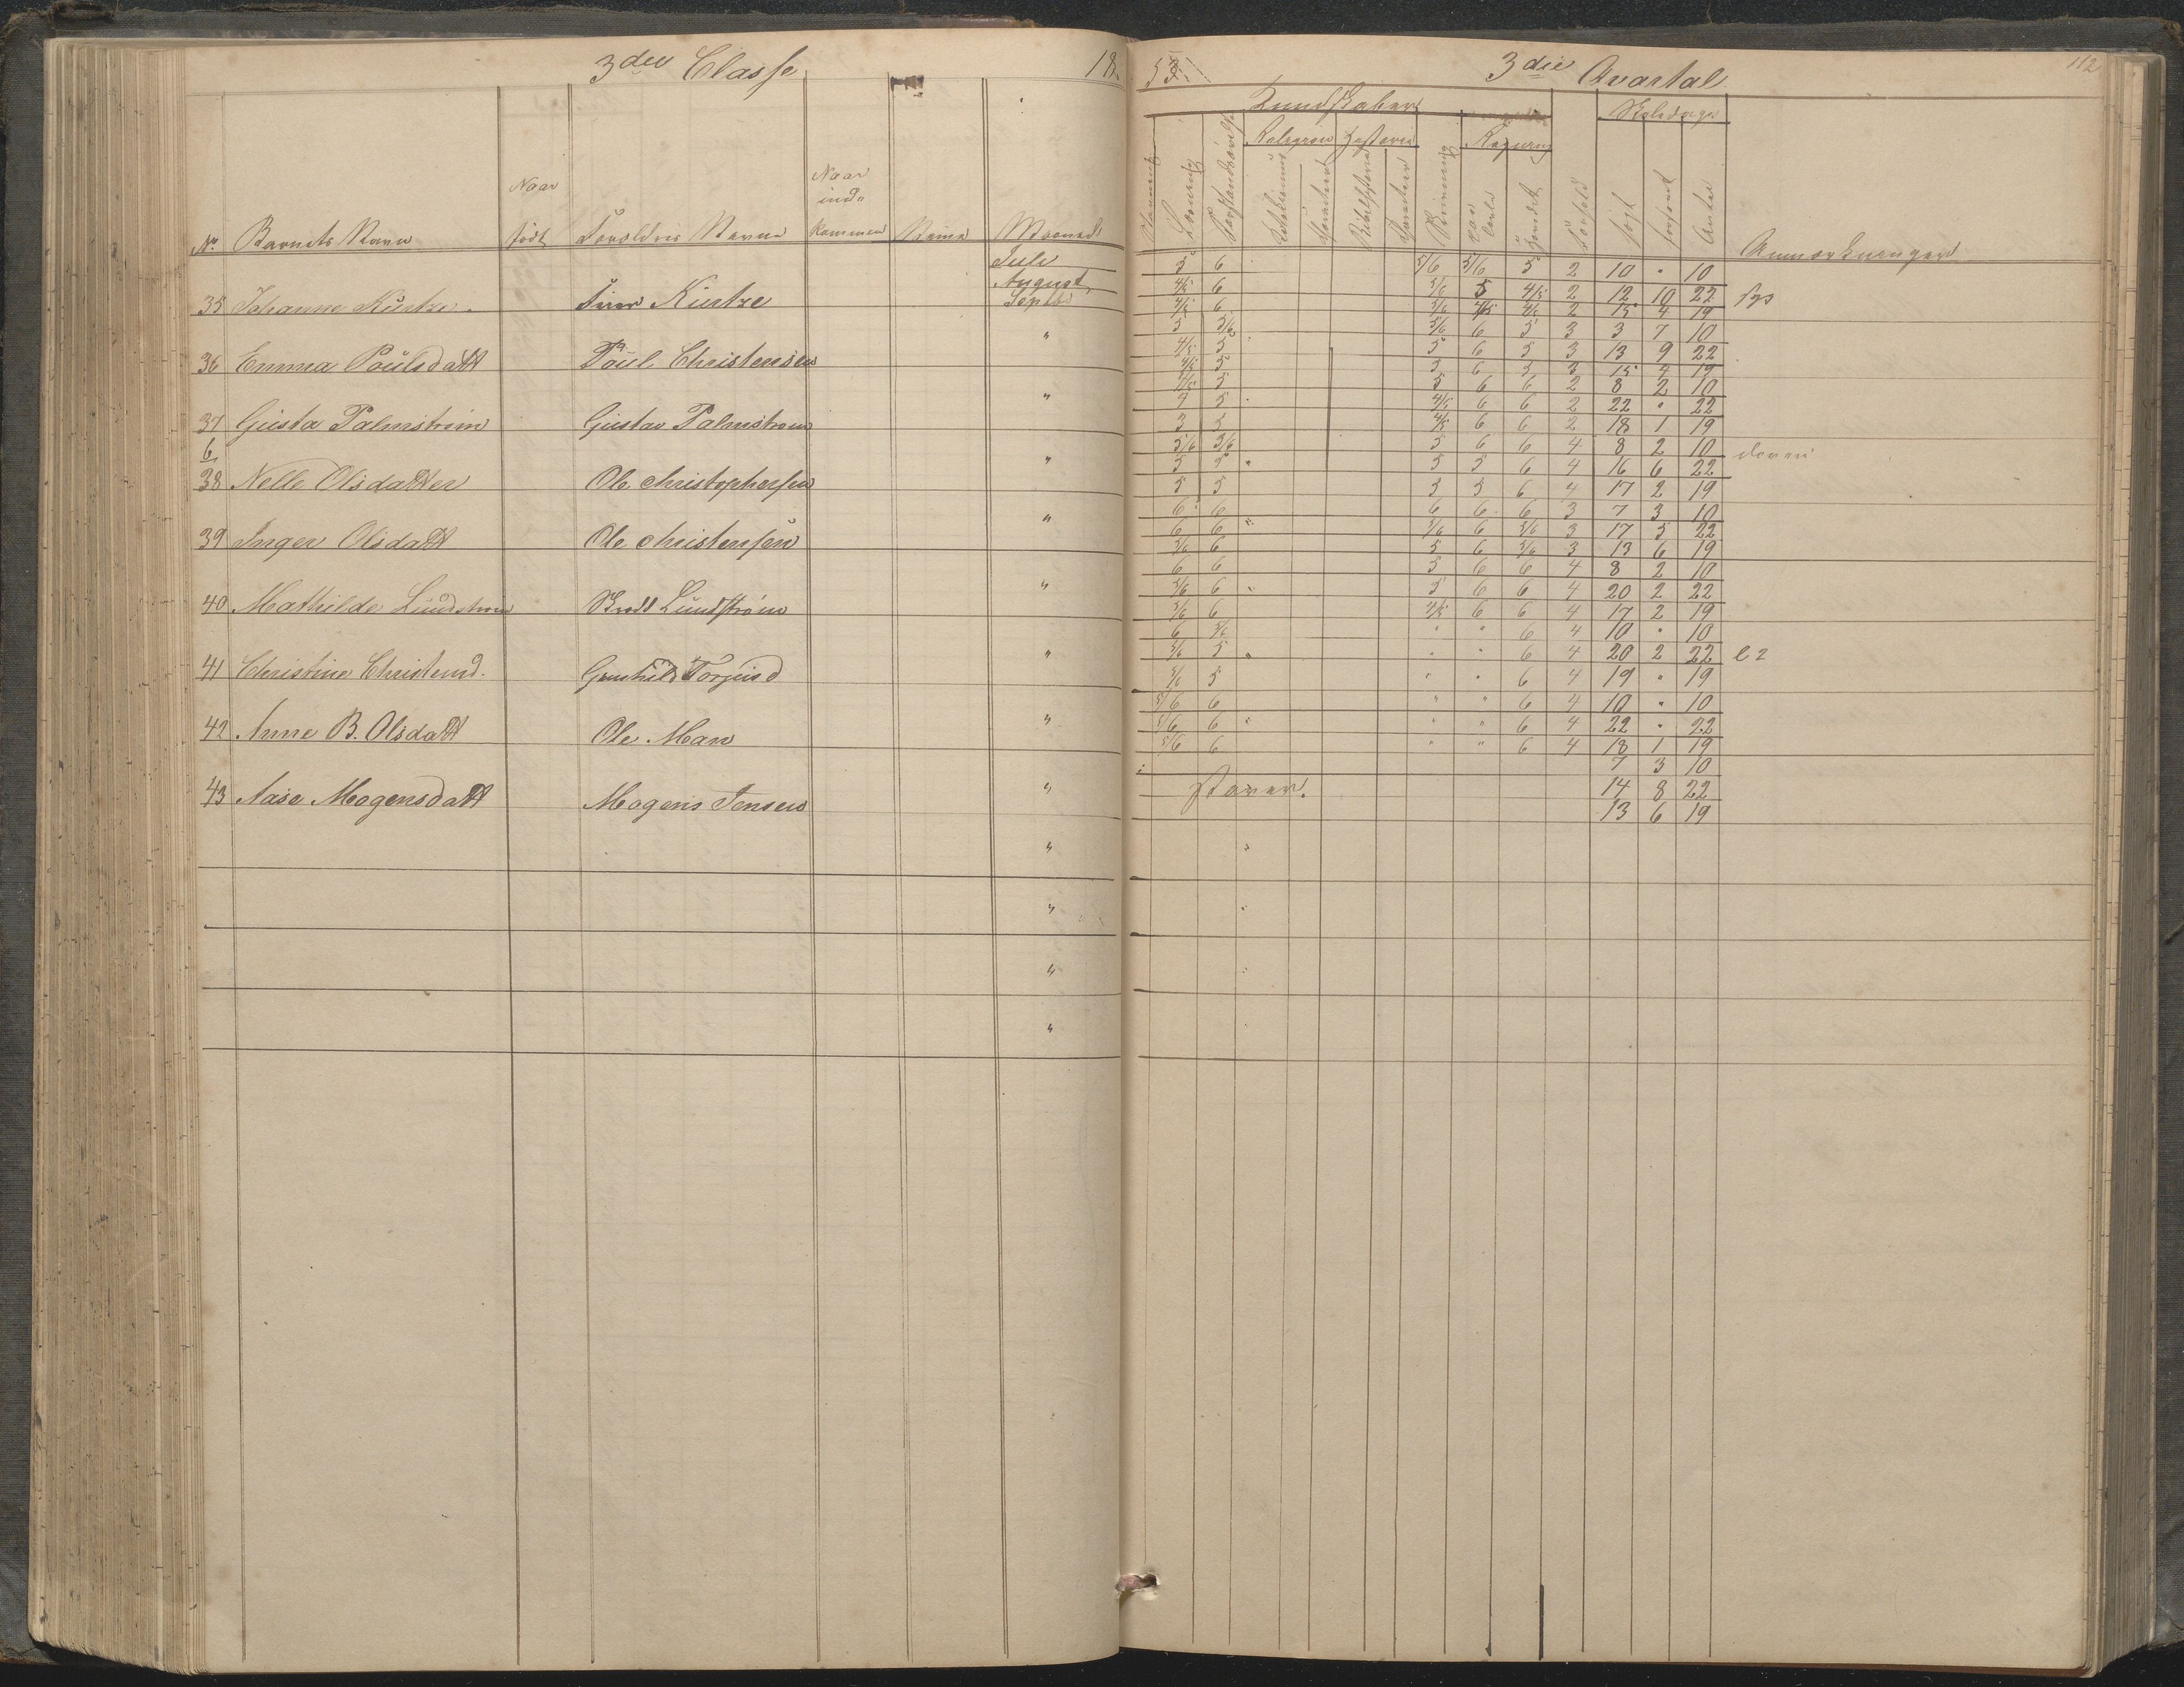 3die Classe 18
N° Barnets Navn Naar født Forældres Navne Naar ind- kommen Maaned
Juli
August
35 Johanne Küntze. Küntze Septbr
36 Emma Poulsdatt Poul Christensen "
37 Gusta Palmstrøm Gustav Palmstrøm "
6
38 Nelle Olsdatter Ole Christophersen "
39 Inger Olsdatt Ole Christensen "
40 Mathilde Lundstrøm Lundstrøm "
41 Christine Christensd. Gunhild Torjusd "
42 Anne B. Olsdatt Ole Man "
43 Aase Mogensdatt Mogens Jensen "
"
"
"
"
53 3die Qvartal 112
Kundskaber Skoledage
Religion Historie Regning
Stavning Læsning Forstandsøvelse Katekismus Forklar Bibelhistorie Skrivning Tavle Hovedet Forhold søgt forsømt Antal Anmærkninger
5 6 5/6 5/6 5 2 10 " 10
4/5 6 5/6 5 4/5 2 12 10 22 syg
4/5 6 5/6 4/5 4/5 2 15 4 19
5 5/6 5/6 6 5 3 3 7 10
4/5 5 5 6 5 3 13 9 22
4/5 5 5 6 5 3 15 4 19
4/5 5 5 6 6 2 8 2 10
5 4/5 6 6 2 22 " 22
5 5 4/5 6 6 2 18 1 19
5/6 5/6 5 6 6 4 8 2 10 doven
5 5 5 5 6 4 16 6 22
5 5 5 5 6 4 17 2 19
6 6 6 6 6 3 7 3 10
6 6 5/6 6 5/6 3 17 5 22
5/6 6 5 6 5/6 3 13 6 19
6 6 5 6 6 4 8 2 10
5/6 6 5 6 6 4 20 2 22
5/6 6 4/5 6 6 4 17 2 19
6 5/6 " " 6 4 10 " 10
5/6 5 " " 6 4 20 2 22
5/6 5 " " 6 4 19 " 19
5/6 6 " " 6 4 10 " 10
5/6 6 " " 6 4 22 " 22
5/6 6 " " 6 4 18 1 19
7 3 10
Staver. 14 8 22
13 6 19